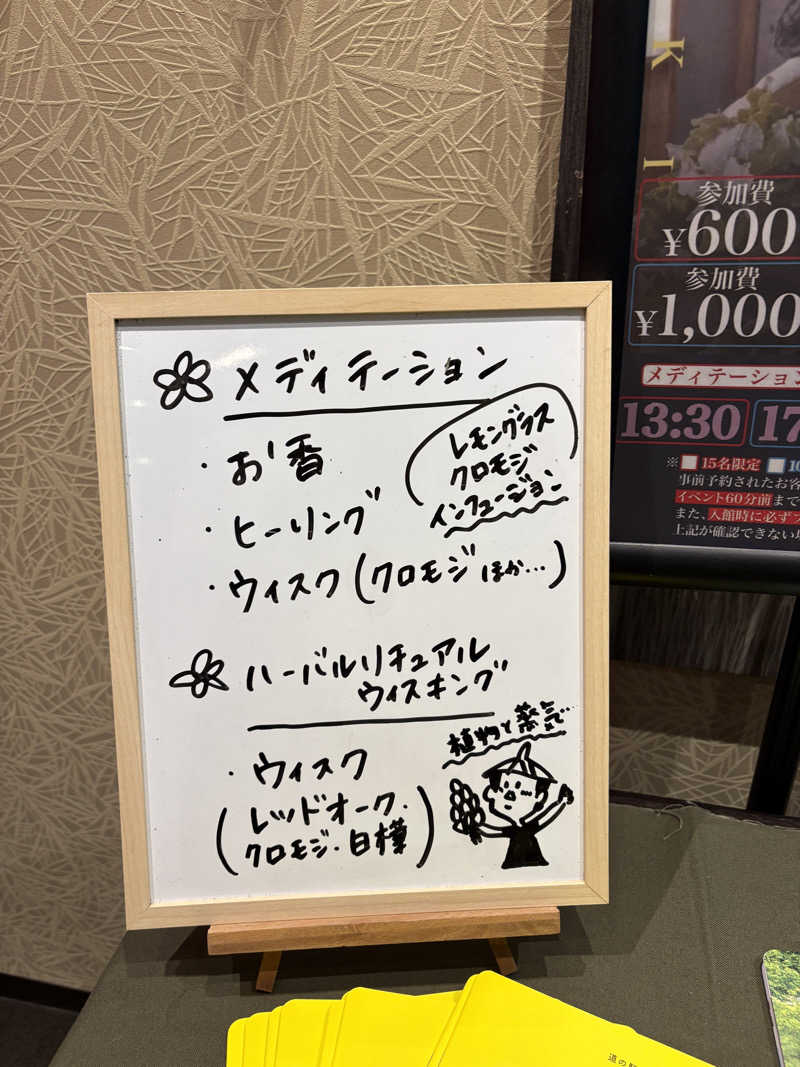 メディテーション
・お香
・ヒーリング
・ウィスク(クロモジほか…)
レモングラス
クロモジ
インフュージョン
ハーバルリチュアル
ウィスキング
植物と蒸気で
・ウィスク
(レッドオーク・
クロモジ・白樺)
K
I
参加費
¥600
参加費
¥1,000
メディテーション
13:30 17
※ 15名限定 10
事前予約されたお客
イベント60分前まで
また、入館時に必ず
上記が確認できない場
道の